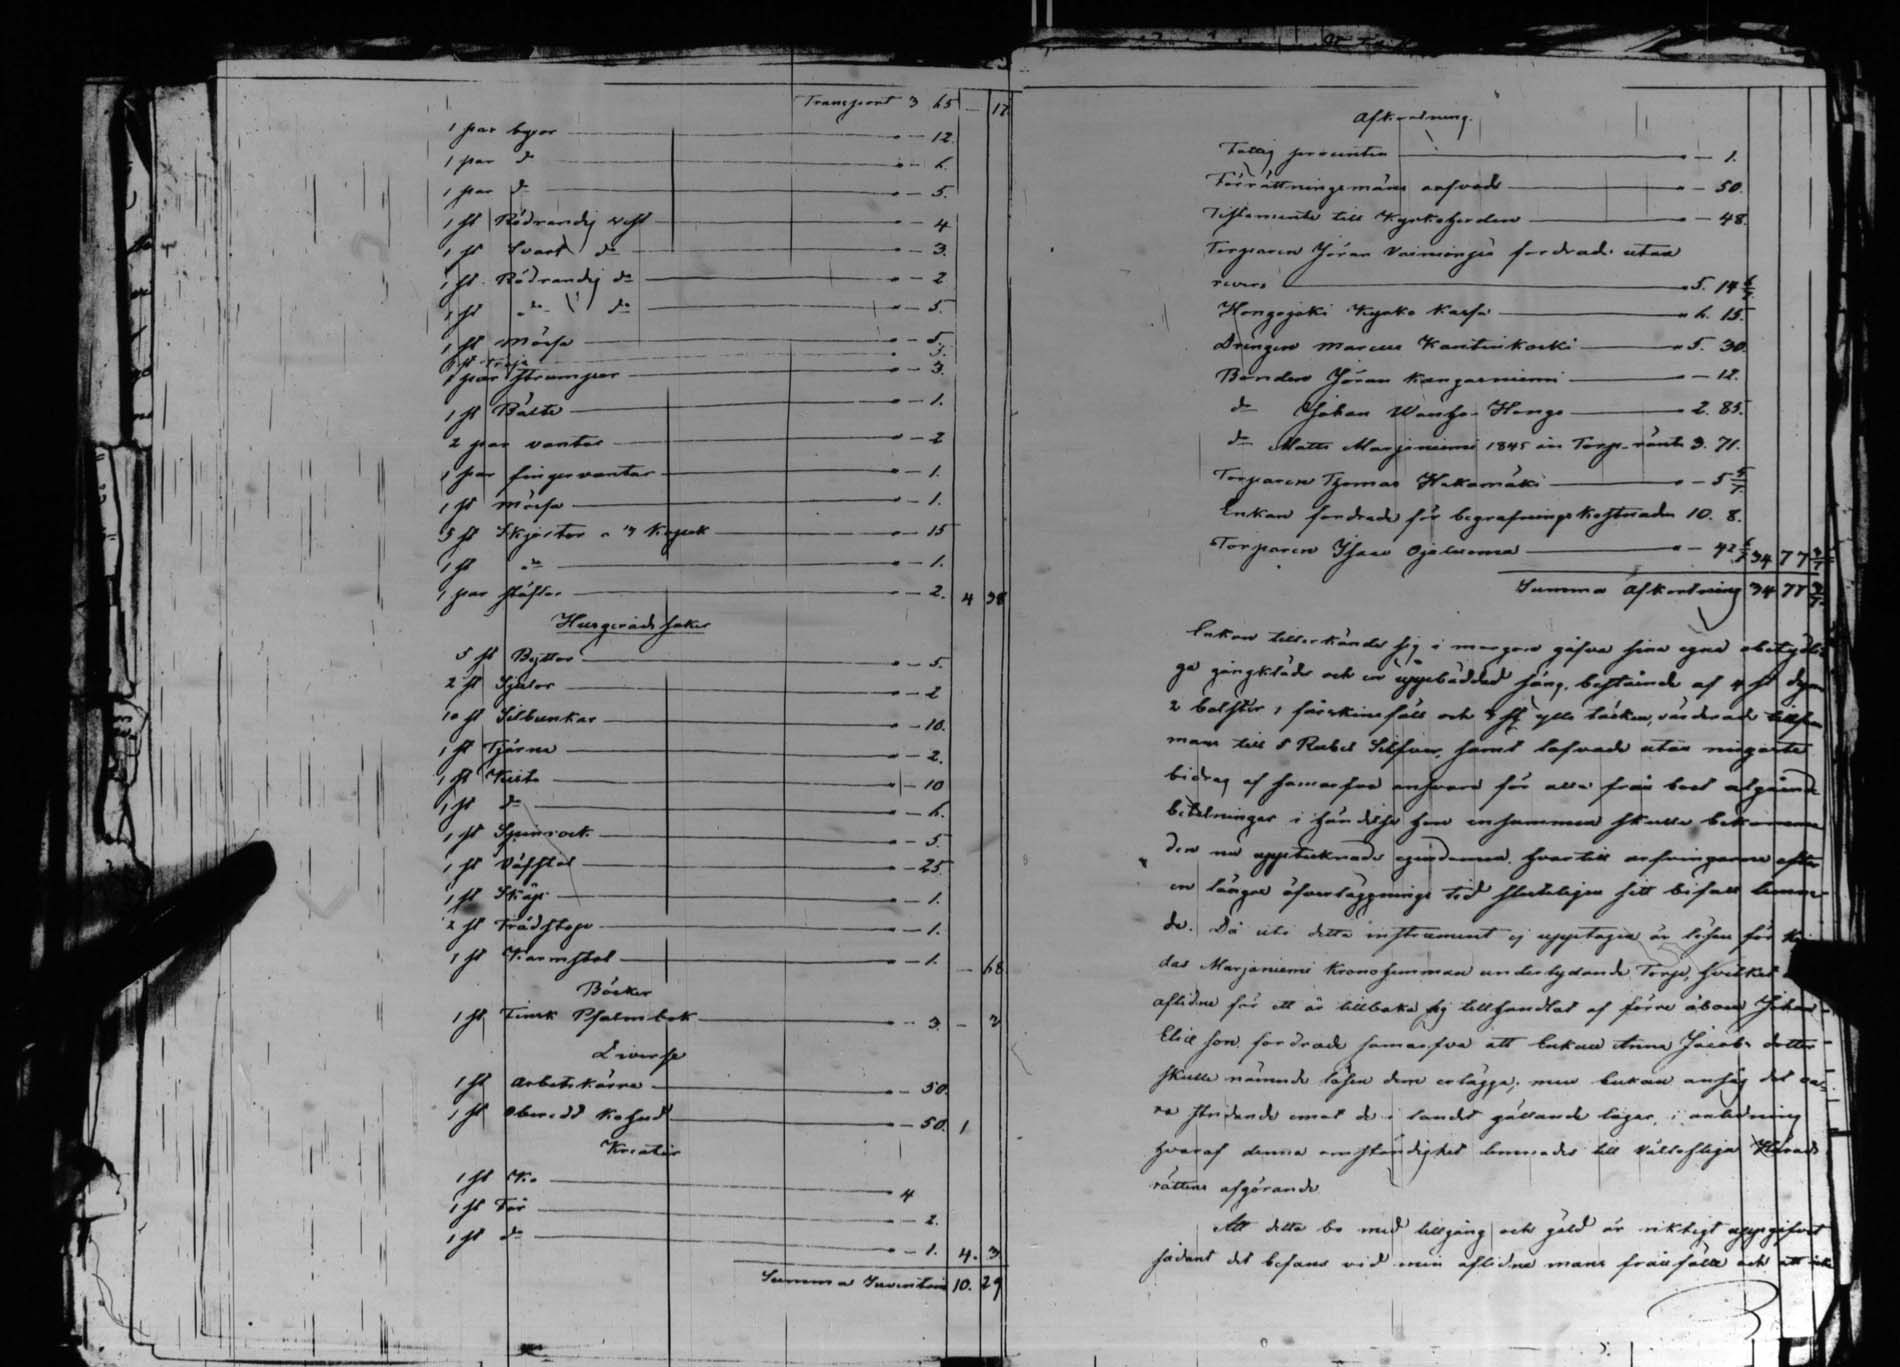 Transport 3 65 — 17
1 par byxor — " — 12.
1 par d:o — " — 6.
1 par d:o — " — 5.
1 st Rödrandig vest — " — 4
1 st Svart d:o — " — 3.
1 st Rödrandig d:o — " — 2
1 st d:o d:o — " — 5.
1 st Mössa — " — 5.
1 st Tröja — 5.
1 par strumpor — " — 3.
1 st Bälte — " — 1.
2 par vantar — " — 2
1 par fingervantar — " — 1.
1 st Mössa — " — 1.
5 st Skjortor a 3 Kopek — " — 15
1 st d:o — " — 1.
1 par stöflor — " — 2. 4 38
Husgeråds saker
5 st Byttor — " — 5.
2 st Sjulor — " — 2
10 st Silbunkar — " — 10.
1 st Tjärna — " — 2.
1 st Kista — " — 10
1 st d:o — " — 6.
1 st Spinrock — " — 5.
1 st Väfstol — " — 25.
1 st Skåp — " — 1.
2 st Trädstop — " — 1.
1 st Karmstol — " — 1. — 68
Böcker
1 st Finsk Psalmbok — " — 3. — 3
Diverse
1 st Arbetskärra — " — 50.
1 st Oberedd Kohud — " — 50. 1
Kreatur
1 st Ko — " 4
1 st Får — " — 2.
1 st d:o — " — 1. 4. 3
Summa Inventarium 10. 29
Afkortning.
Fattig procenten — " — 1.
Förrättningsmäns arfvode — " — 50.
Testamente till Kyrkoherden — " — 48
Torparen Jöran Vainionpää fordrade utan
revers — " 5. 14 6/7.
Hongojoki Kyrko Kassa — " 6. 15.
Drengen Marcus Kantinkoski — " 5. 30.
Bonden Jöran Kangasniemi — " — 12.
d:o Johan Wanha-Hongo — " 2. 85.
d:o Matts Marjoniemi 1845 års Torp-ränta 3. 71.
Torparen Thomas Hakamäki — " — 5 5/7.
Enkan fordrade för begrafnings Kostnader 10. 8.
Torparen Isaac Ojaluoma — " — 42 6/7 34 77 3/7
Summa Afkortning 34 77 3/7
Enkan tillerkände sig i morgon gåfva sina egna obetydli-
ga gångkläder och en uppbäddad säng, bestående af 4 st dynor
2 bolstrar 1 fårskinsfäll och 3 st ylle täcken, värderade tillsam
mans till 5 Rubel Silfver, samt lofvade utan någat
bidrag af samarfva ansvara för alla från boet utgående
betalningar i händelse hon ensammen skulle bekomma
den nu upptecknade egendomen. hvartill arfvingarne efter
en längre öfverläggnings tid slutligen sitt bifall lemna-
de. Då uti detta instrument ej upptagen är lösen för
das Marjaniemi Kronohemman underlydande Torp, hvilket
aflidne för ett år tillbaka sig tillhandlat af förre åboen Johan
Elias son. fordrade samarfva att Enkan Anna Jacobs dotter
skulle nämnde lösen dem erlägga; men Enkan ansåg det va-
ra stridande emot de i landet gällande lagar, i anledning
hvaraf denna omständighet lemnades till Vällofliga Härads
rättens afgörande.
Att detta bo med tillgång och gäld är riktigt uppgifvet
sådant det befans vid min aflidne mans frånfälle och att icke